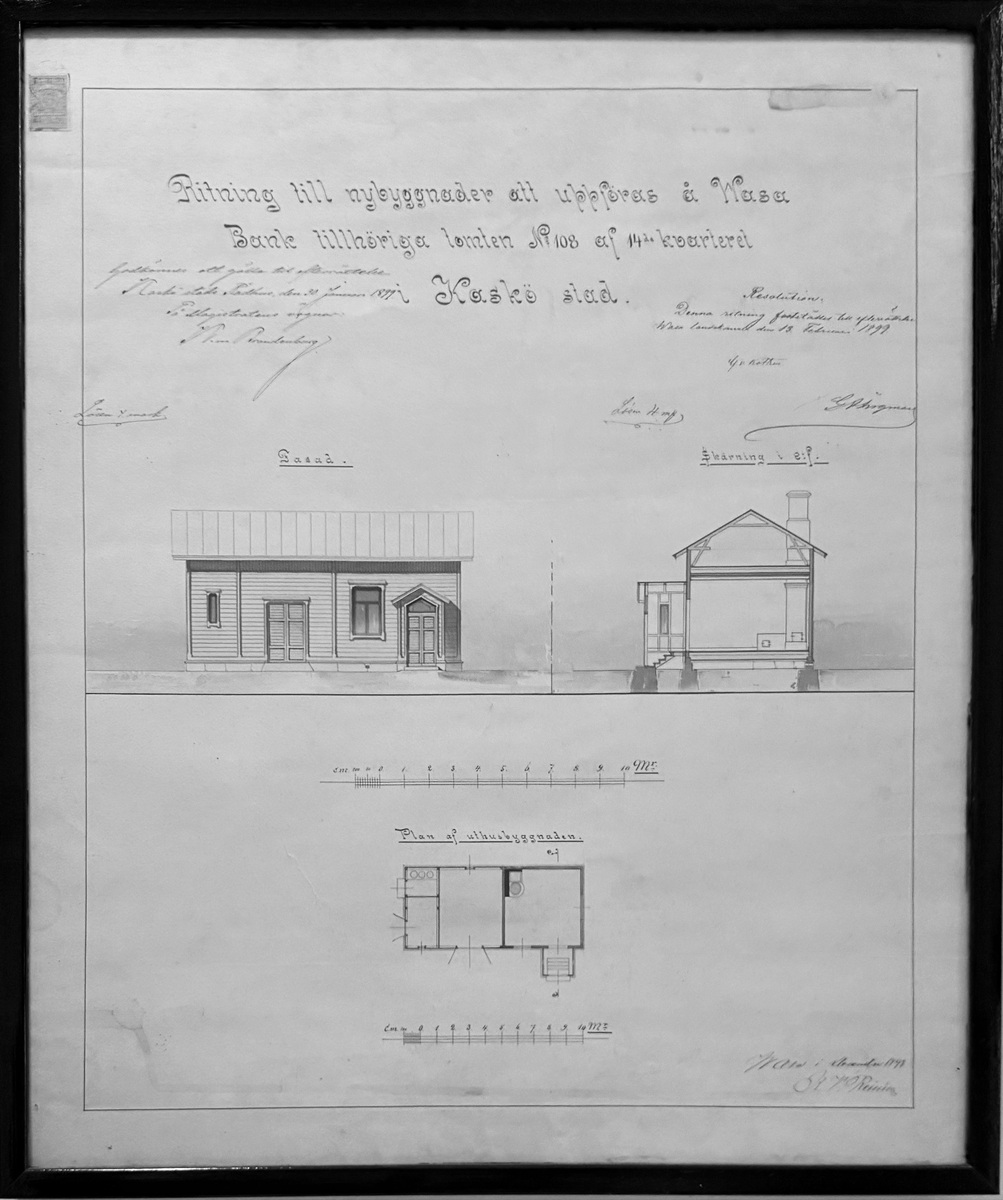 Ritning till nybyggnader att uppföras å Wasa
Bank tillhöriga tomten No 108 af 14de kvarteret
i Kaskö stad.
Godkännes att gälla till efterrättelse
Kaskö stads Rådhus, den 30 Januari 1899
På Magistratens vägnar
Brandenburg
Lösen 4 mark
Resolution.
Denna ritning fastställes till efterrättelse
Wasa landskansli den 13 Februari 1899
Lösen 4 mk
Fasad.
Skärning i e:f.
cm 10 5 0 1. 2 3. 4. 5. 6. 7. 8. 9. 10 Mr.
Plan af uthusbyggnaden.
Cm 0 1 2 3 4 5 6 7 8 9. 10 Mr
Wasa i November 1898